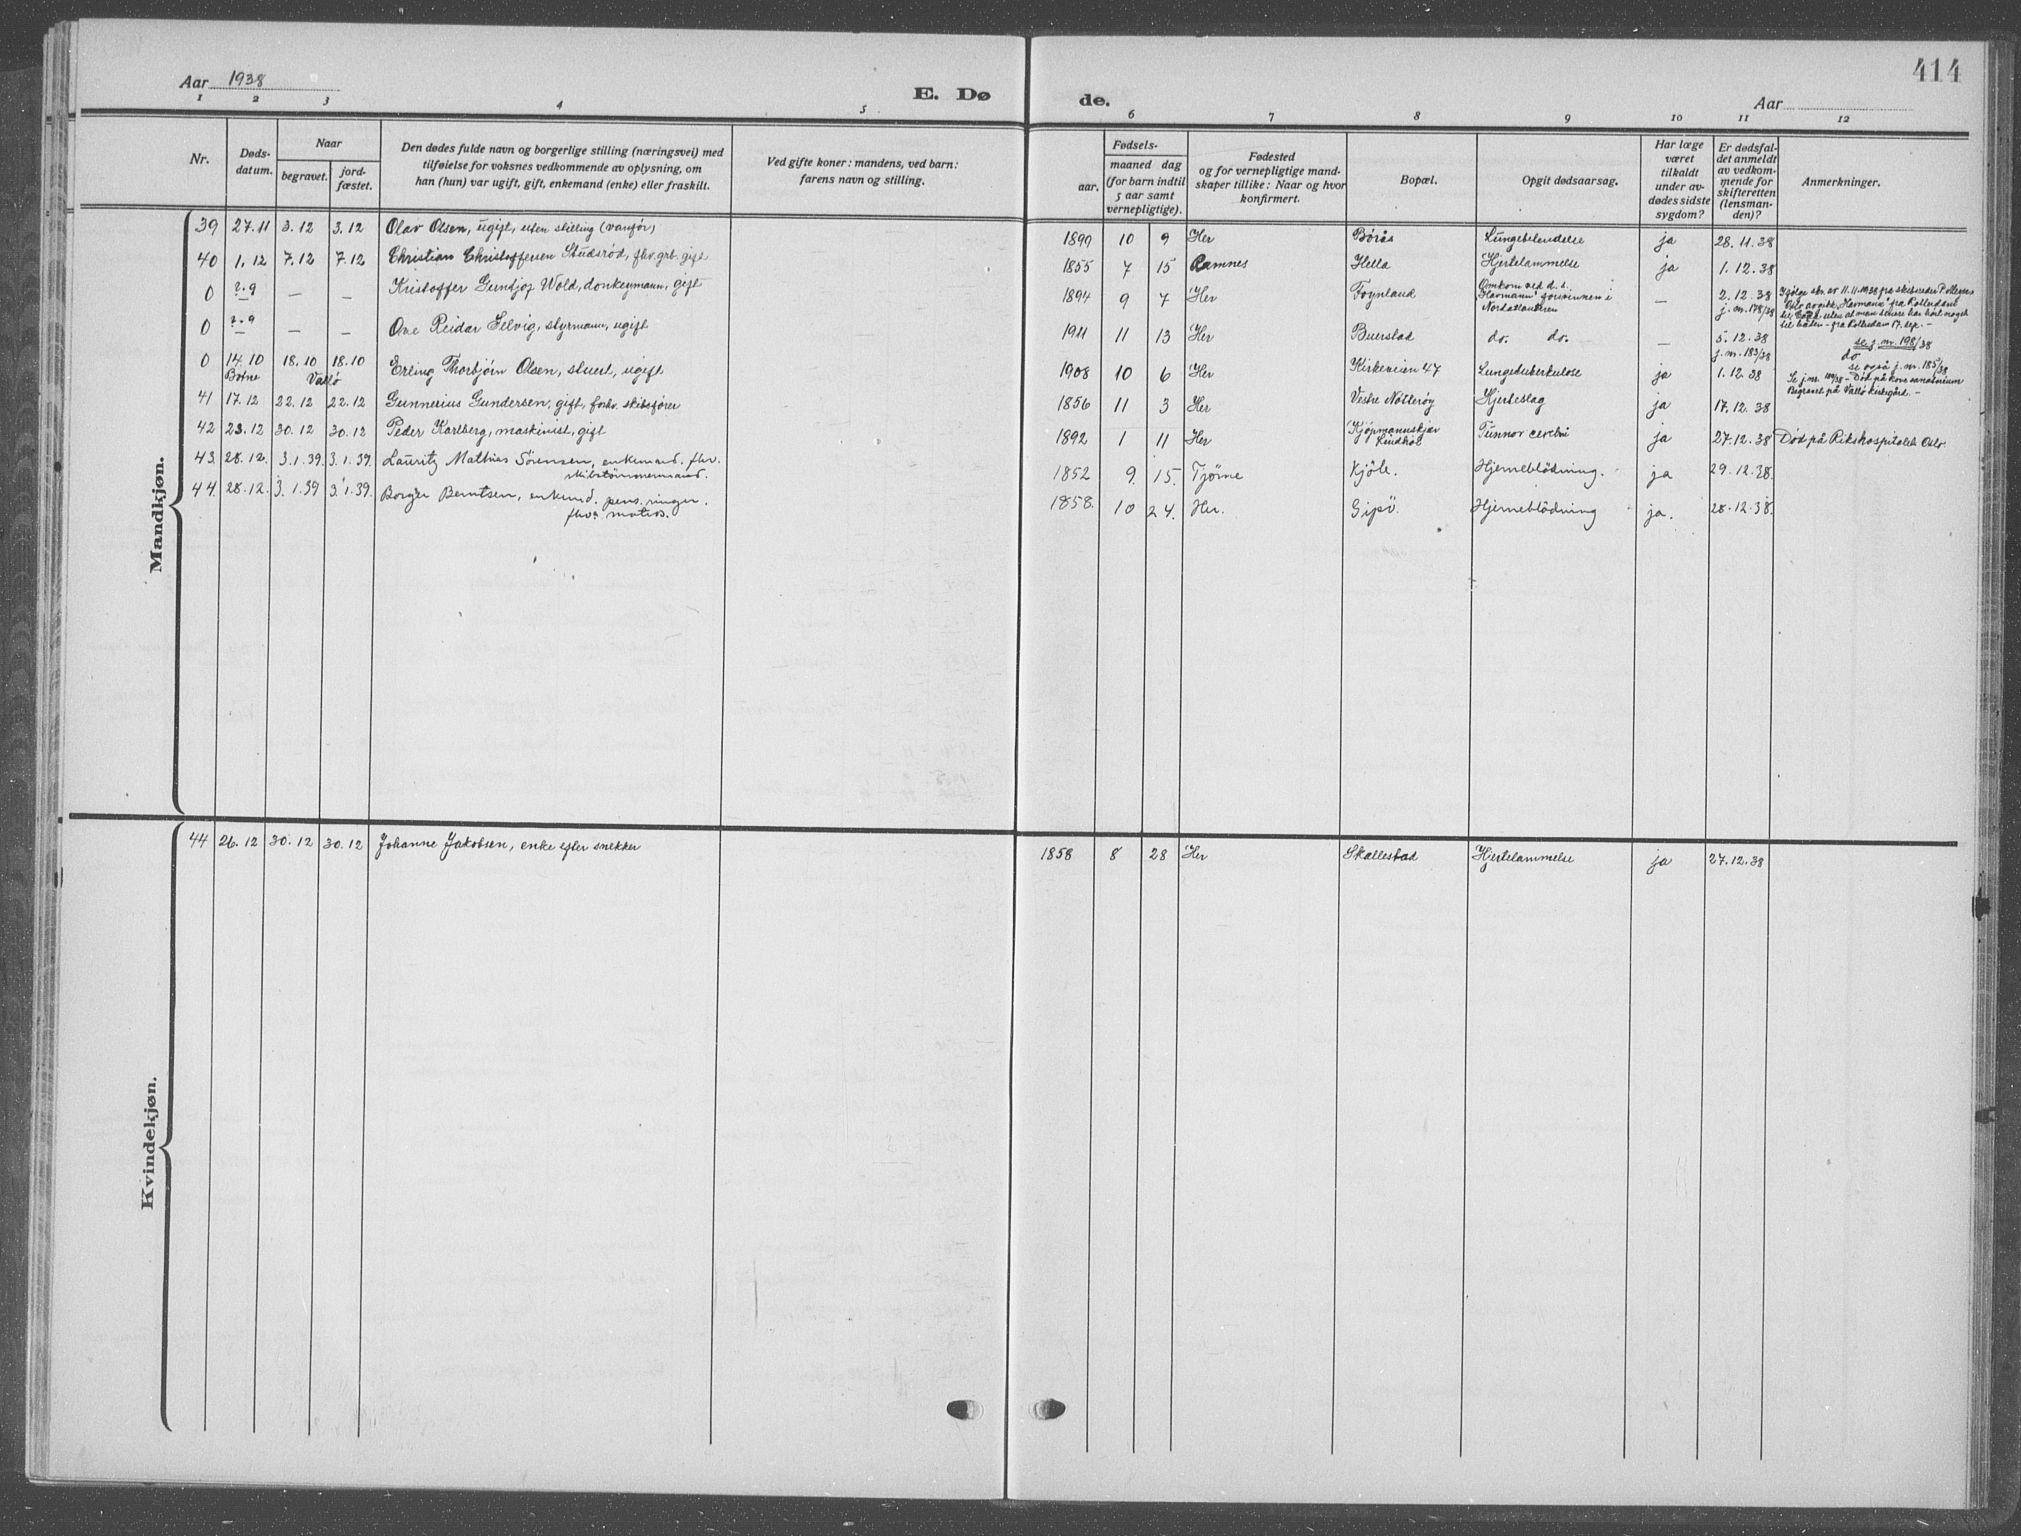 414
Aar 1938
E. Dø
de.
Aar
1 2 3 4 5 6 7 8 9 10 11 12
Nr.
Døds-
datum.
Naar
begravet.
jord-
fæstet.
Den dødes fulde navn og borgerlige stilling (næringsvei) med
tilføielse for voksnes vedkommende av oplysning, om
han (hun) var ugift, gift, enkemand (enke) eller fraskilt.
Ved gifte koner: mandens, ved barn:
farens navn og stilling.
Fødsels-
aar.
maaned dag
(for barn indtil
5 aar samt
vernepligtige).
Fødested
og for vernepligtige mand-
skaper tillike: Naar og hvor
konfirmert.
Bopæl.
Opgit dødsaarsag.
Har læge
været
tilkaldt
under av-
dødes sidste
sygdom?
Er dødsfal-
det anmeldt
av vedkom-
mende for
skifteretten
(lensman-
den)?
Anmerkninger.
Mandkjøn.
39 27.11 3.12 3.12 Olav Olsen, ugift, uten stilling (vanfør) 1899 10 9 Her Børås Lungebetendelse ja 28.11.38
40 1.12 7.12 7.12 Christian Christoffersen Studsrød, fhv. grb. gift 1855 7 15 Ramnes Hella Hjertelammelse ja 1.12.38
0 ?.9 — — Kristoffer Gunbjog Wold, donkeymann, gift 1894 9 7 Her Føynland Omkom ved d.s.
"Havmann"s forsvinnen i
Nordatlanteren — 2.12.38
j.nr. 178/38
Ifølge skr. av 11.11.1938 fra skibsreder P. Meyer
Oslo avgikk "Havmann" fra Rotterdam
uten at man senere har hørt noget
til båten - fra Rotterdam 17. sep. -
0 ?.9 — — Ove Reidar Selvig, styrmann, ugift 1911 11 13 Her Buerstad do. do. — 5.12.38
j.nr. 183/38
se j.nr. 198/38
do
se også j.nr. 185/38
0 14.10 18.10 18.10 Erling Thorbjørn Olsen, stuert, ugift 1908 10 6 Her Kirkeveien 47 Lungetuberkulose ja 1.12.38
Botne Vallø
Se j.nr. 180/38 - Død på sanatorium
Begravet på Vallø kirkegård. -
41 17.12 22.12 22.12 Gunnerius Gundersen, gift, forhv. skibsfører 1856 11 3 Her Vestre Nøtterøy Hjerteslag ja 17.12.38
42 23.12 30.12 30.12 Peder Karlberg, maskinist, gift 1892 1 11 Her Kjøpmannskjær
Lindhol Tumor cerebri ja 27.12.38 Død på Rikshospitalet Oslo.
43 28.12. 3.1.39. 3.1.39. Lauritz Mathias Sørensen, enkemand. fhv.
skibstømmermand. 1852 9. 15. Tjøme Kjøle. Hjerneblødning. ja 29.12.38.
44. 28.12. 3.1.39 3.1.39. Borger Berntsen, enkemd. pens. ringer.
fhv. matros. 1858. 10 24. Her. Gipø. Hjerneblødning ja. 28.12.38.
Kvindekjøn.
44 26.12 30.12 30.12 Johanne Jakobsen, enke efter snekker 1858 8 28 Her Skallestad Hjertelammelse ja 27.12.38